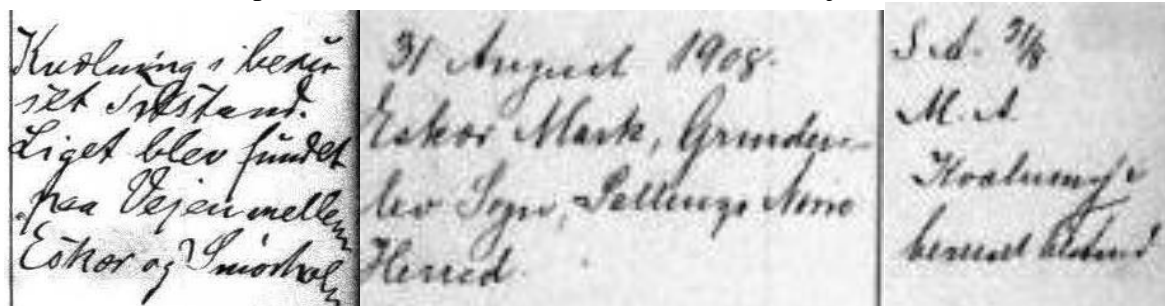 Kvælning i berus
set Tilstand.
Liget blev fundet
paa Vejen mellem
Eskær og Smørhol
31 August 1908.
Eskær Mark, Grinder-
lev Sogn, Salling Nørre
Herred.
S. A. 31/8
M. A.
Kvælning i
beruset tilstand